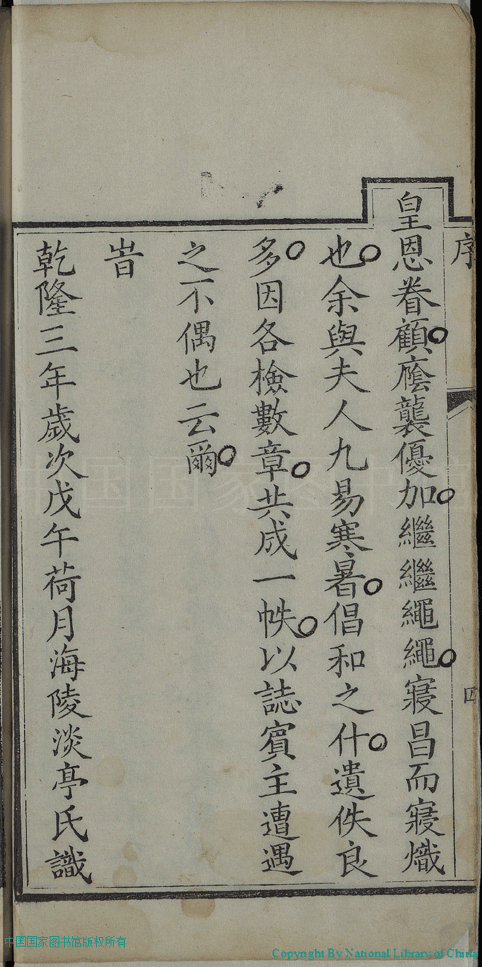 序
四
皇恩眷顧。廕襲優加。繼繼繩繩。寢昌而寢熾
也。余與夫人九易寒暑。倡和之什。遺佚良
多。因各檢數章。共成一帙。以誌賓主遭遇
之不偶也云爾。
旹
乾隆三年歲次戊午荷月海陵淡亭氏識
中国国家图书馆
中国国家图书馆版权所有
Copyright By National Library of China